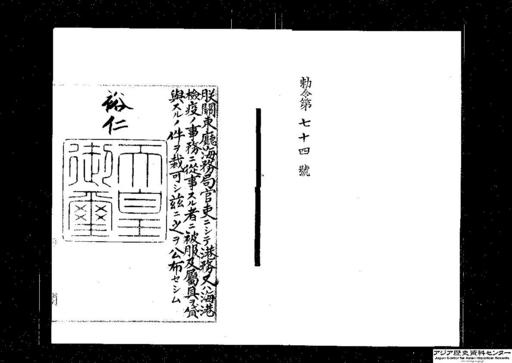 勅令第七十四號
朕關東廳海務局官吏ニシテ港務又ハ海港
檢疫ノ事務ニ從事スル者ニ被服及屬具ヲ貸
與スルノ件ヲ裁可シ茲ニ之ヲ公布セシム
裕仁
天皇
御璽
アジア歴史資料センター
Japan Center for Asian Historical Records